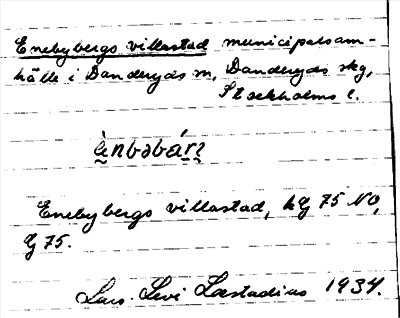 Enebybergs villastad municipalsam-
hälle i Danderyds sn, Danderyds skg,
Stockholms l.
ènbəbárı
Enebybergs villastad, hG 75 NO,
G 75.
Lars-Levi Læstadius 1934.